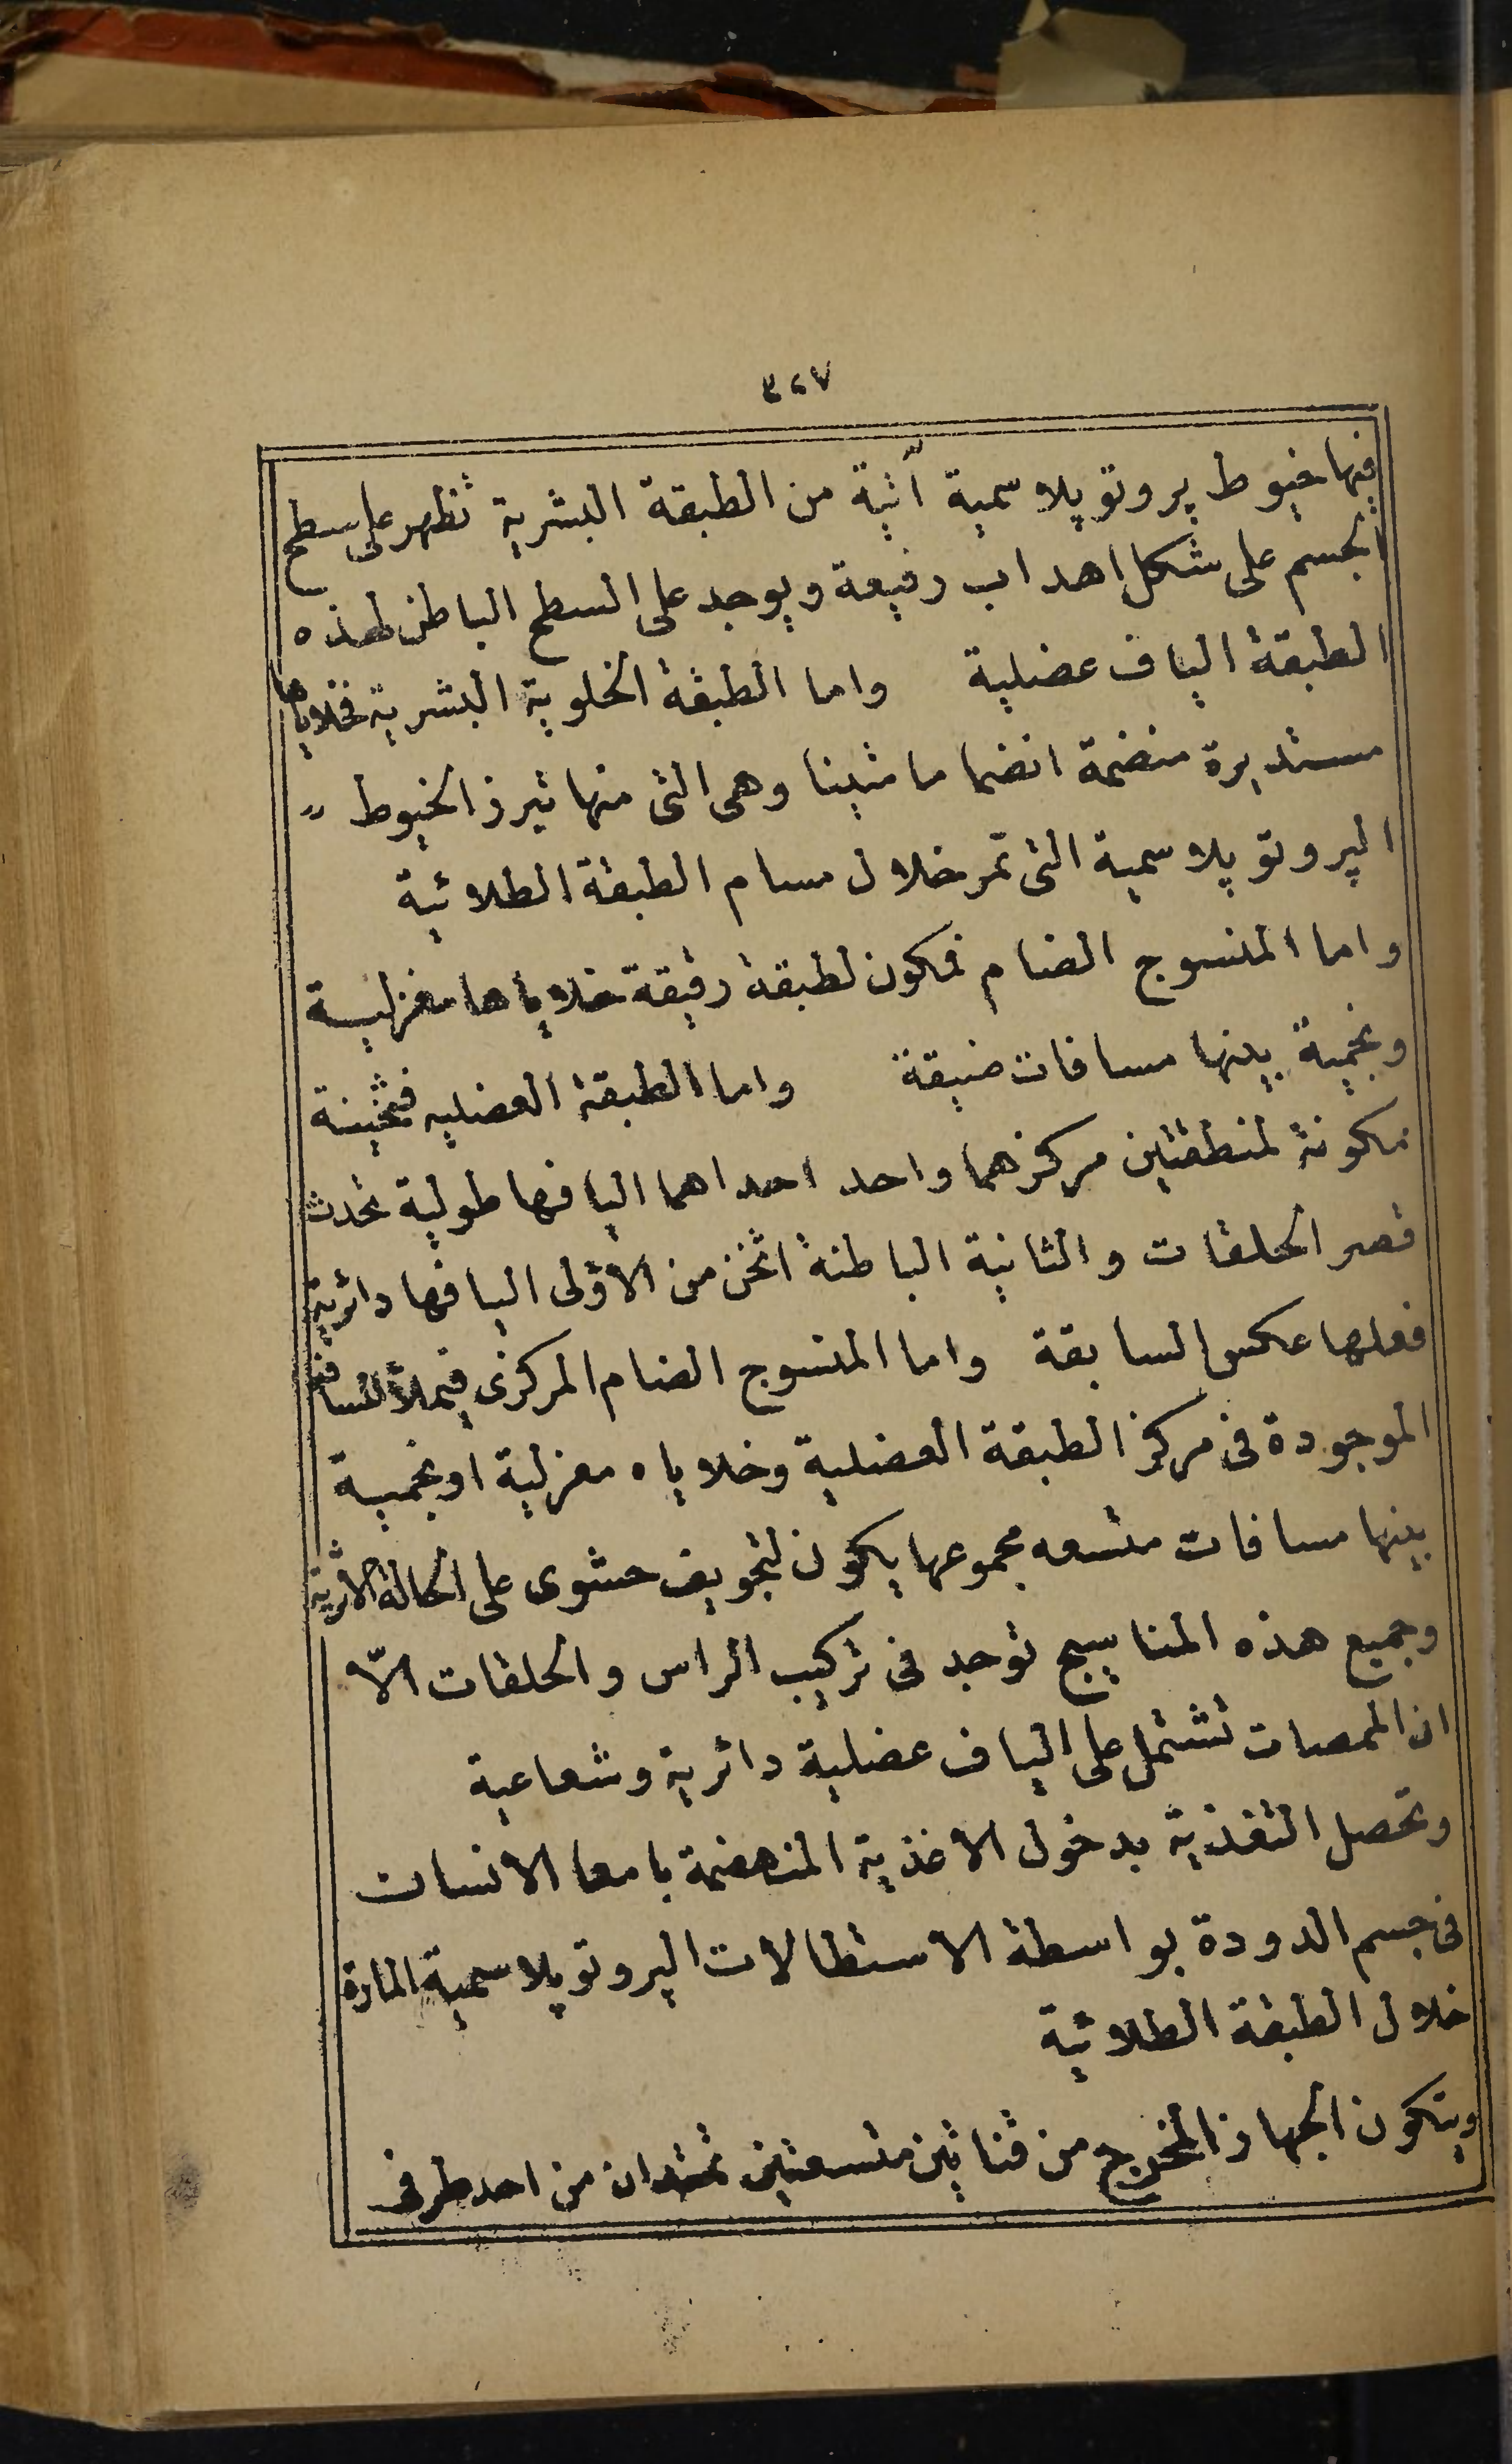 ٣٢٧
فيها خيوط پروتوپلاسمية آتية من الطبقة البشرية تظهر على سطح
الجسم على شكل اهداب رفيعة ويوجد على السطح الباطن لهذه
الطبقة الياف عضلية واما الطبقة الخلوية البشرية فخلاياها
مستديرة منضمة انضماما متينا وهى التى منها تبرز الخيوط
الپروتوپلاسمية التى تمر خلال مسام الطبقة الطلائية
واما المنسوج الضام فمكون لطبقة رقيقة خلاياها مغزلية
ونجمية بينها مسافات ضيقة واما الطبقة العضليه فثخينة
مكونة لمنطقتين مركزهما واحد احداهما اليافها طولية تحدث
قصر الحلقات والثانية الباطنة اثخن من الاولى اليافها دائرية
فعلها عكس السابقة واما المنسوج الضام المركزى فيملأ المسافة
الموجودة فى مركز الطبقة العضلية وخلاياه مغزلية او نجمية
بينها مسافات متسعه مجموعها يكون لتجويف حشوى على الحالة الاثرية
وجميع هذه المناسيج توجد فى تركيب الراس والحلقات الّا
ان الممصات تشتمل على الياف عضلية دائرية وشعاعية
وتحصل التغذية بدخول الاغذية المنهضمة بامعا الانسان
فى جسم الدودة بواسطة الاستطالات الپروتوپلاسمية المارة
خلال الطبقة الطلائية
ويتكون الجهاز المخرج من قناتين متسعتين تمتدان من احد طرفى